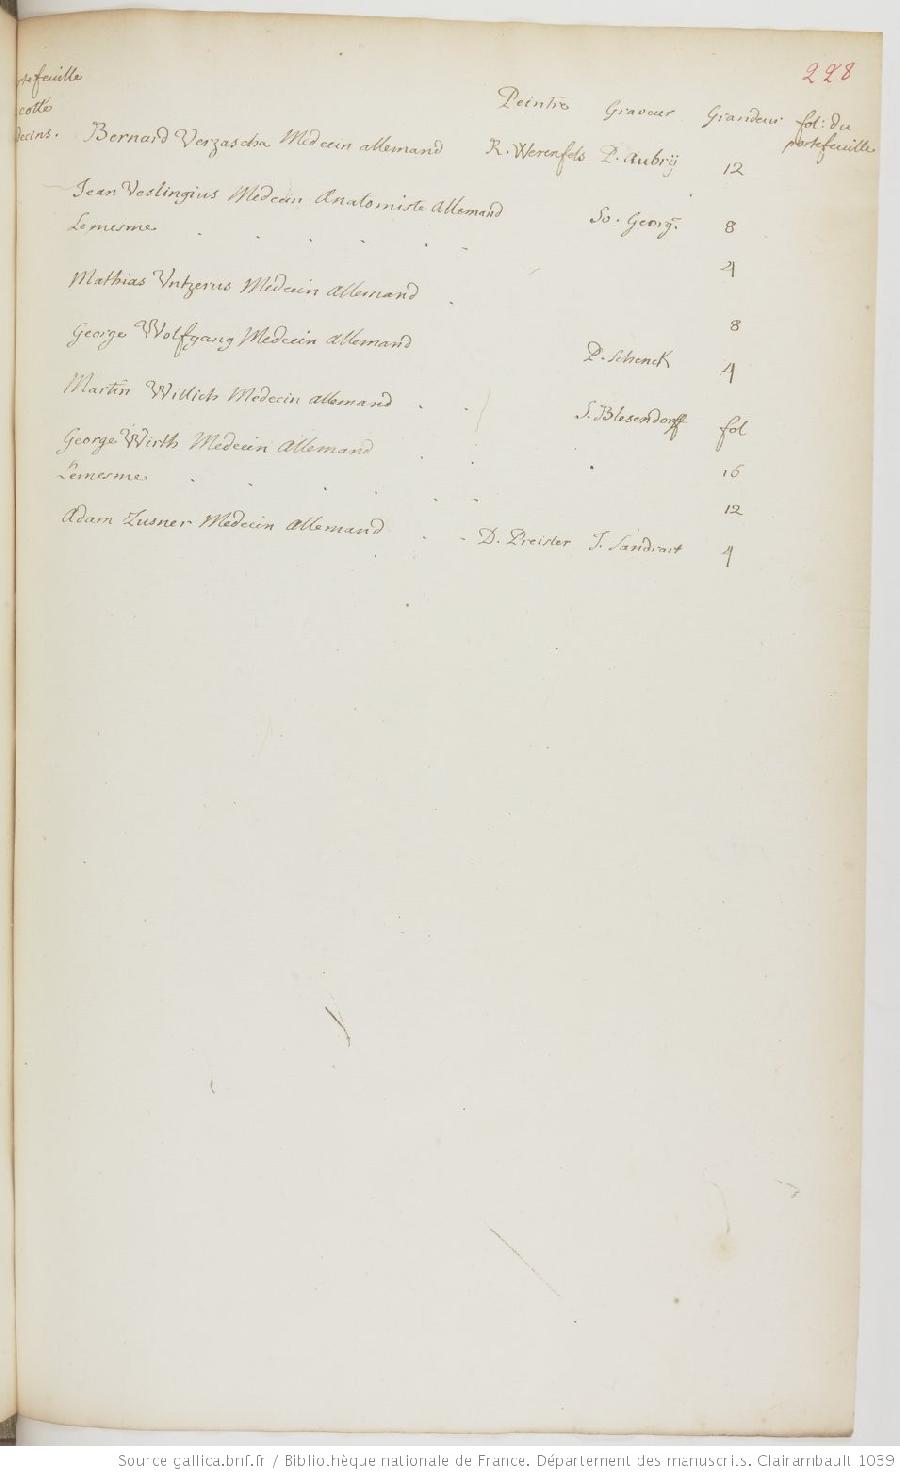 228
Peintre Graveur Grandeur fol: du
portefeuille
cotté
Bernard Verzascha Medecin allemand R. Werenfels P. Aubrÿ 12
Jean Veslingius Medecin Anatomiste Allemand Jo. Georg. 8
Lemesme . . . . . . 4
Mathias Untzerus Medecin Allemand . 8
George Wolfgang Medecin Allemand P. Schenck 4
Martin Willich Medecin allemand . . S. Blesendorff fol
George Wirth Medecin Allemand . . 16
Lemesme . . . . . . 12
Adam Zusner Medecin Allemand . . D. Preisler J. Sandrart 4
Source gallica.bnf.fr / Bibliothèque nationale de France. Département des manuscrits. Clairambault 1039